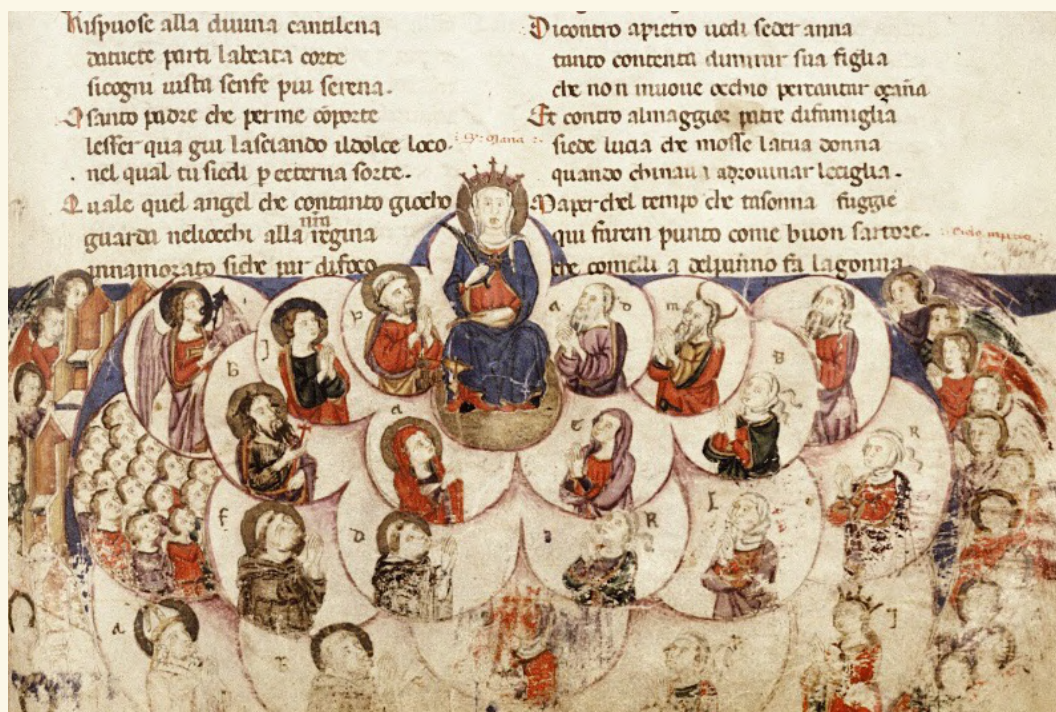 Rispuose alla diuina cantilena
datucte parti labeata corte
sicogni uista senfe piu serena.
O santo padre che perme cōporte
lesser qua giu lasciando ildolce loco.
nel qual tu siedi p ecterna sorte.
Quale quel angel che contanto giocho
guarda neliocchi alla regina
innamorato siche par difoco
Dicontro apietro uedi seder anna
tanto contenta dimirar sua figlia
che non muoue occhio percantar osāna
Et contro almaggior patre difamiglia
siede lucia che mosse latua donna
quando chinaua adrouinar leciglia.
Maperchel tempo che tasonna fuggie
qui farem punto come buon sartore.
che comelli a delpanno fa lagonna
maria
p
a
d
m
b
J
B
a
R
f
d
R
L
a
J